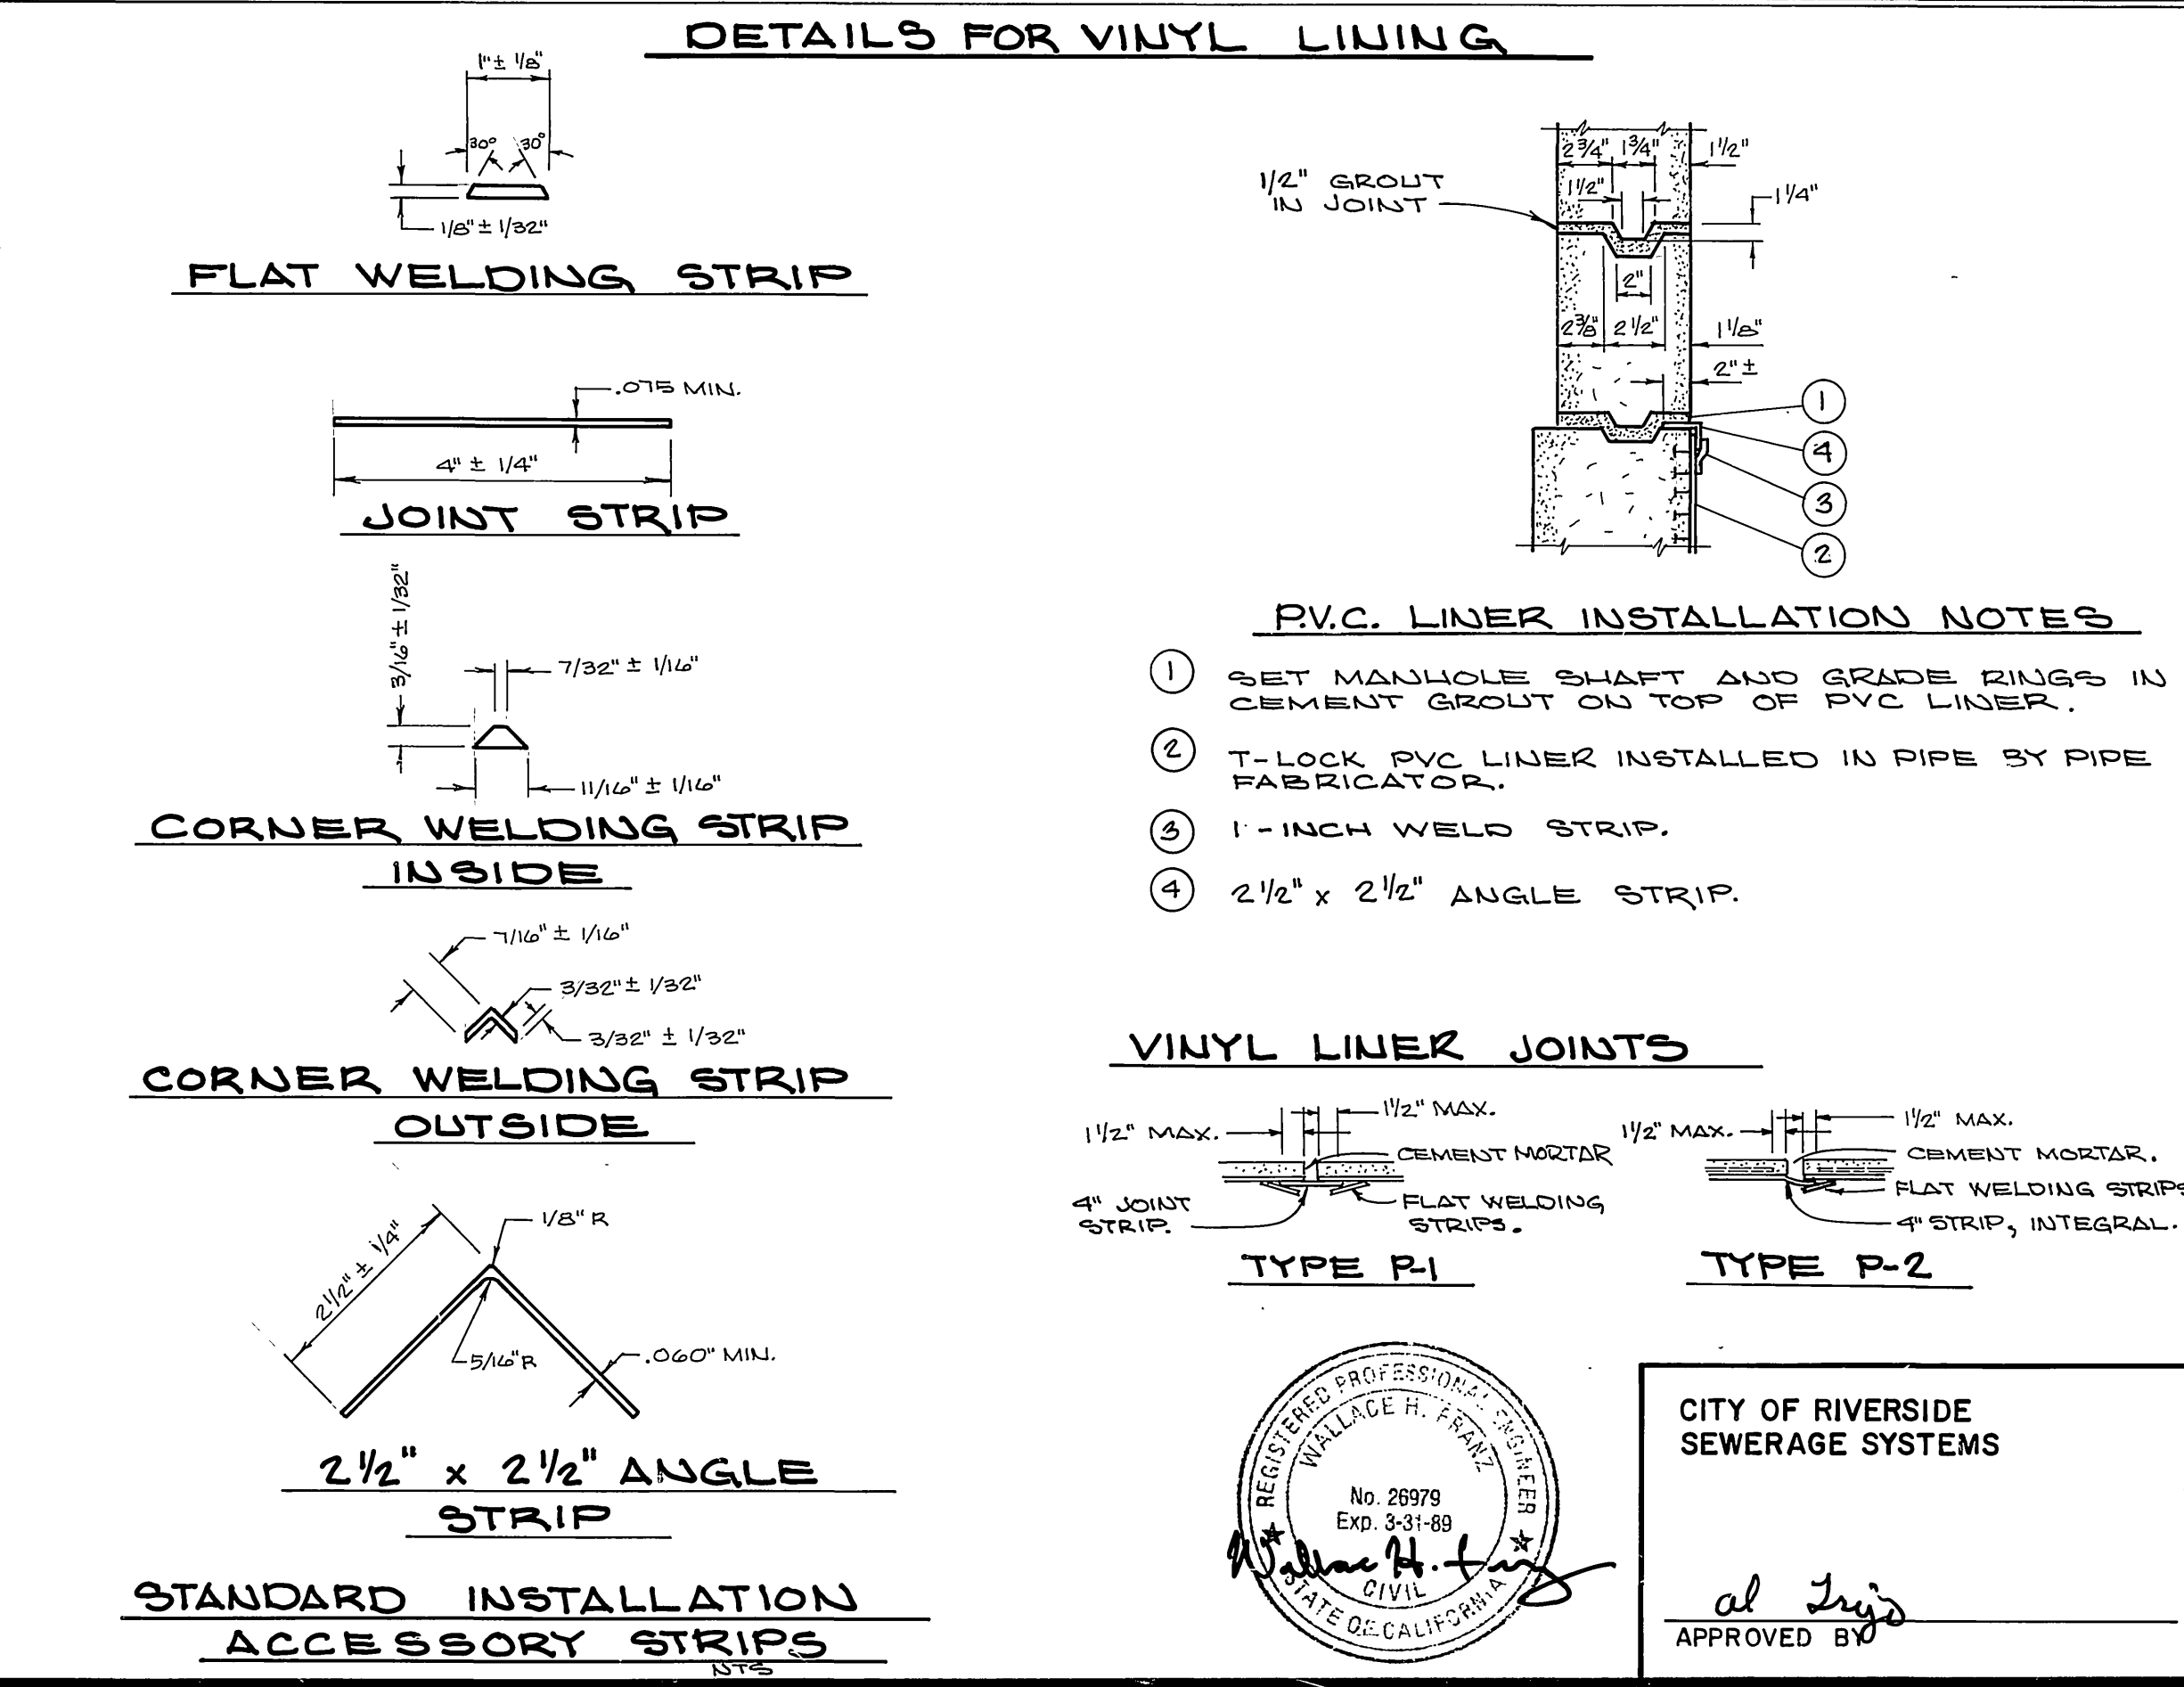 DETAILS FOR VINYL LINING
1" ± 1/8"
30° 30°
1/8" ± 1/32"
FLAT WELDING STRIP
.075 MIN.
4" ± 1/4"
JOINT STRIP
3/16" ± 1/32"
7/32" ± 1/16"
11/16" ± 1/16"
CORNER WELDING STRIP
INSIDE
7/16" ± 1/16"
3/32" ± 1/32"
3/32" ± 1/32"
CORNER WELDING STRIP
OUTSIDE
2 1/2" ± 1/4"
1/8" R
5/16" R
.060" MIN.
2 1/2" x 2 1/2" ANGLE
STRIP
STANDARD INSTALLATION
ACCESSORY STRIPS
NTS
1/2" GROUT
IN JOINT
2 3/4" 1 3/4" 1 1/2"
1 1/2"
1 1/4"
2"
2 3/8" 2 1/2" 1 1/8"
2" ±
1
4
3
2
P.V.C. LINER INSTALLATION NOTES
1 SET MANHOLE SHAFT AND GRADE RINGS IN
CEMENT GROUT ON TOP OF PVC LINER.
2 T-LOCK PVC LINER INSTALLED IN PIPE BY PIPE
FABRICATOR.
3 1-INCH WELD STRIP.
4 2 1/2" x 2 1/2" ANGLE STRIP.
VINYL LINER JOINTS
1 1/2" MAX.
1 1/2" MAX.
CEMENT MORTAR
4" JOINT
STRIP.
FLAT WELDING
STRIPS.
TYPE P-1
1 1/2" MAX.
1 1/2" MAX.
CEMENT MORTAR.
FLAT WELDING STRIPS
4" STRIP, INTEGRAL.
TYPE P-2
REGISTERED PROFESSIONAL ENGINEER
WALLACE H. FRANZ
No. 26979
Exp. 3-31-89
Wallace H. Franz
CIVIL
STATE OF CALIFORNIA
CITY OF RIVERSIDE
SEWERAGE SYSTEMS
APPROVED BY